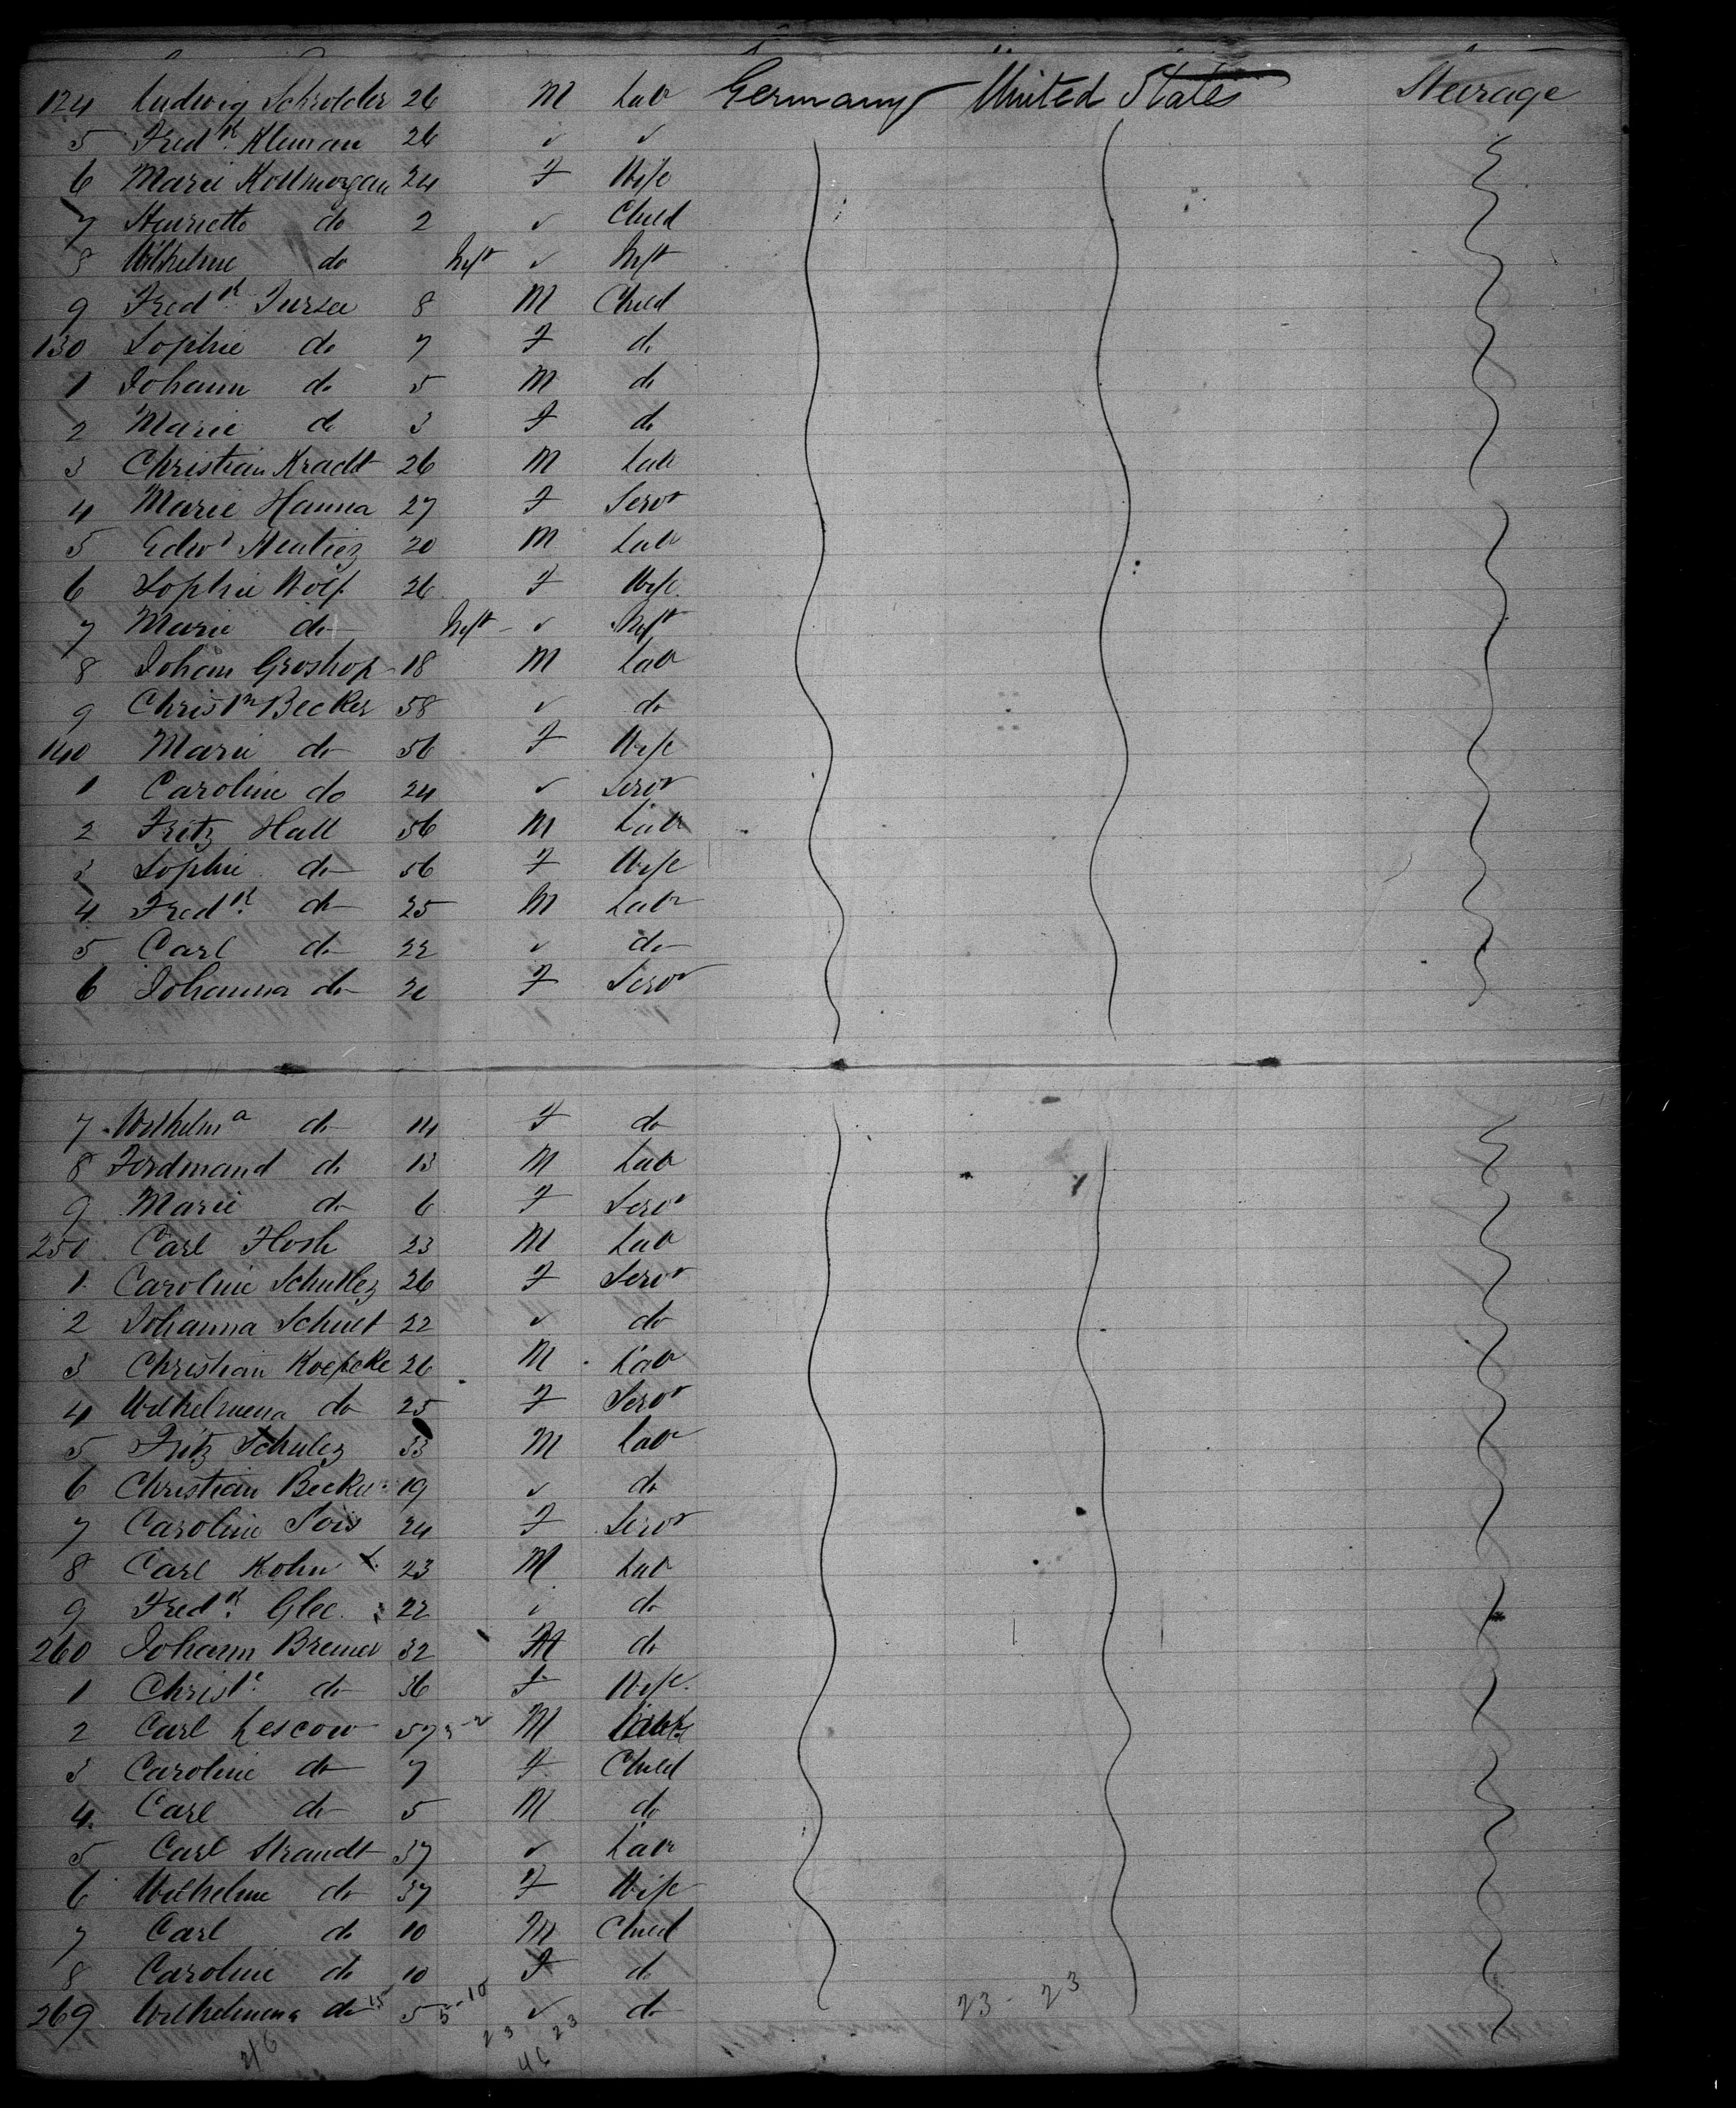 124 Ludwig Schrolder 26 M Lab Germany United States Steerage
5 Fredk. Kleman 26 ✓ ✓
6 Marie Kollmorgan 24 F Wife
7 Henriette do 2 ✓ Child
8 Wilhelme do Inft ✓ Inft
9 Fredk. 8 M Child
130 Sophie do 7 F do
1 Johann do 5 M do
2 Marie do 3 F do
3 Christian Kracht 26 M Lab
4 Marie Hanna 27 F Servt
5 Edwd 20 M Lab
6 Sophie Wolf 26 F Wife
7 Marie do Inft ✓ Inft
8 Johan Groshop 18 M Lab
9 Christn Becker 58 ✓ do
140 Marie do 56 F Wife
1 Caroline do 24 ✓ Servt
2 Fritz Hall 56 M Labr
3 Sophie do 56 F Wife
4 Fredk. do 25 M Labr
5 Carl do 22 ✓ do
6 Johanna do 20 F Servt
7 Wilhelma do 14 F do
8 Ferdinand do 13 M Lab
9 Marie do 6 F Servt
250 Carl Flosh 23 M Lab
1 Caroline Schultez 26 F Servt
2 Johanna Schult 22 ✓ do
3 Christian Koepcke 26 M Lab
4 Wilhelmena do 25 F Servt
5 Fritz Schulez 33 M Lab
6 Christian Becker 19 ✓ do
7 Caroline Sois 24 F Servt
8 Carl Kohn 23 M Lab
9 Fredk. Glec. 22 ✓ do
260 Johann Bremer 32 M do
1 Christe. do 36 F Wife
2 Carl Lescow 57 M
3 Caroline do 7 F Child
4 Carl do 5 M do
5 Carl Strandt 37 ✓ Labr
6 Wilhelme do 37 F Wife
7 Carl do 10 M Child
8 Caroline do 10 F do
269 Wilhelmena do 5 ✓ do
23 - 23
23 23
46 46